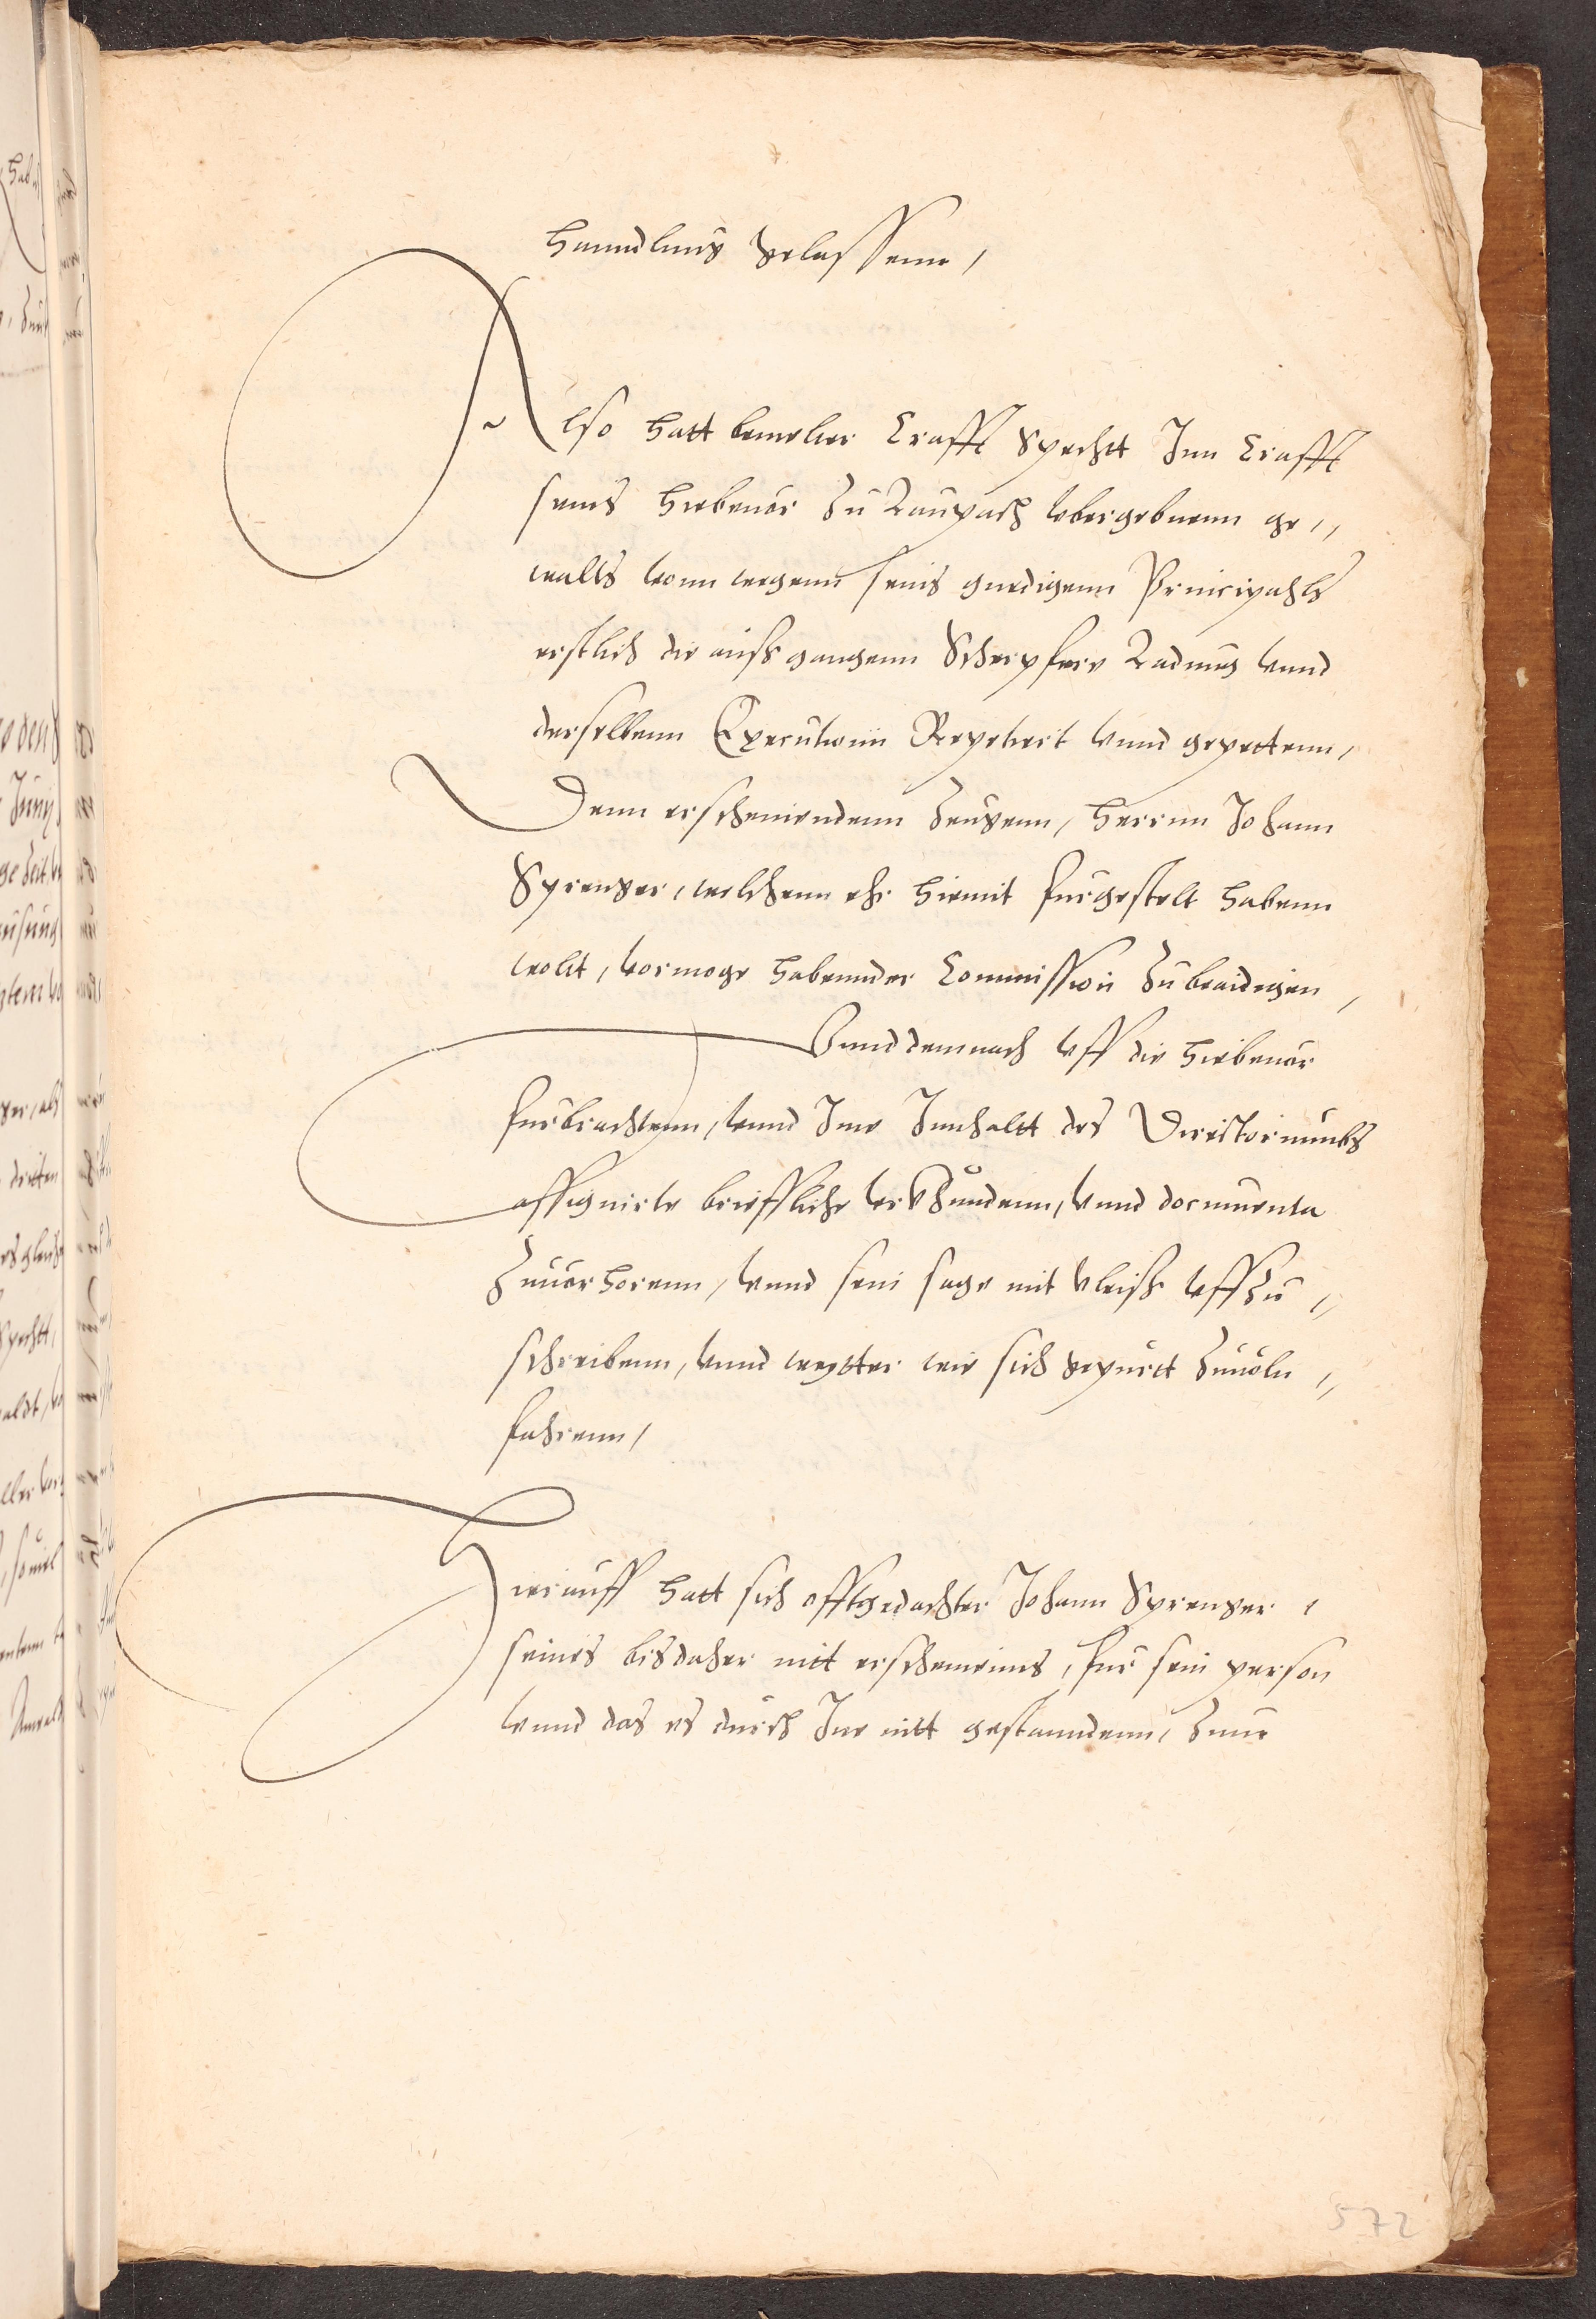 Hanndlung gelassenn,
Also hatt bemelter Crafft Spechtt Inn Crafft
seines hiebeuor zu Laupach vbergebnenn ge„
walts vonn wegenn seins gnedigenn Principahls
erstlich die aussgangenn Scherpfere Ladung vnnd
derselbenn Executionn Repetiert vnnd gepettenn,
Denn erscheinendenn Zeugenn, Herrnn Johann
Sprenger, welchenn ehr hiemit furgestelt habenn
wolt, vermoge habennder Commission zubeaidigen,
Vnnd demnach vff die hiebeuor
furbrachtenn, vnnd Ime Innhaltt des Directoriumbs
assignierte brieffliche vrkhundenn, vnnd documenta
zuuerhorenn, vnnd sein sage mit vleiss vffzu„
schreibenn, vnnd weytter wie sich gepurtt zuuoln„
fahrenn,
Hierauff hatt sich offtgedachter Johann Sprenger,
seines bisdaher nitt erscheinens, fur sein person
vnnd das es durch Ine nitt gestanndenn, zuuor
572